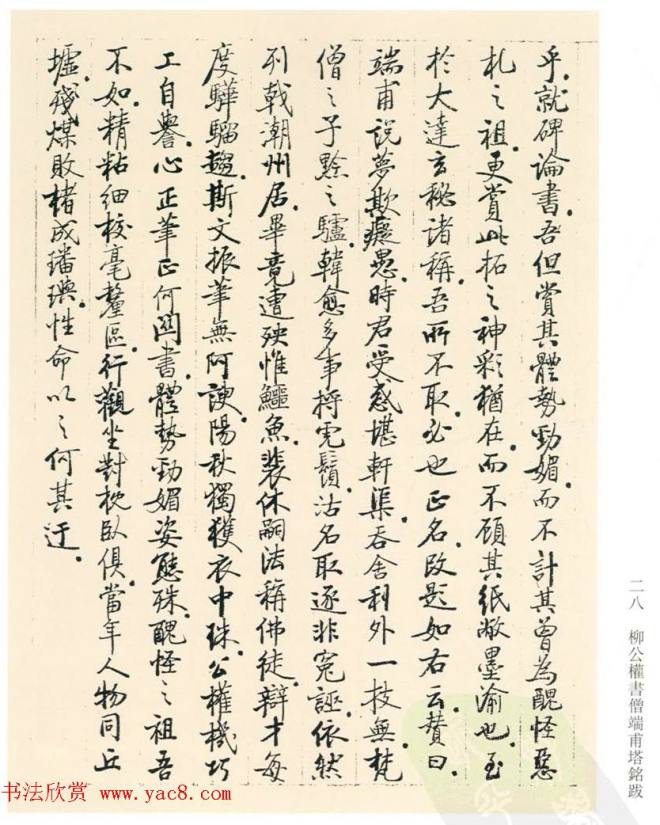 乎就碑論書吾但賞其體勢勁媚而不計其曾為醜怪惡
札之祖更賞此拓之神彩猶在而不顧其紙敝墨渝也至
於大達玄秘諸稱吾所不取必也正名改題如右云贊曰
端甫說夢欺癡愚時君受惑堪軒渠吞舍利外一技無梵
僧之子黔之驢韓愈多事捋虎鬚沽名取逐非冤誣依然
列戟潮州居畢竟遭殃惟鱷魚裴休嗣法稱佛徒辯才每
度驊騮趨斯文振筆無阿諛陽秋獨獲衣中珠公權機巧
工自譽心正筆正何關書體勢勁媚姿態殊醜怪之祖吾
不如精粘細校毫釐區行觀坐對枕臥俱當年人物同丘
墟殘煤敗楮成璠璵性命以之何其迂
二八 柳公權書僧端甫塔銘跋
书法欣赏 www.yac8.com